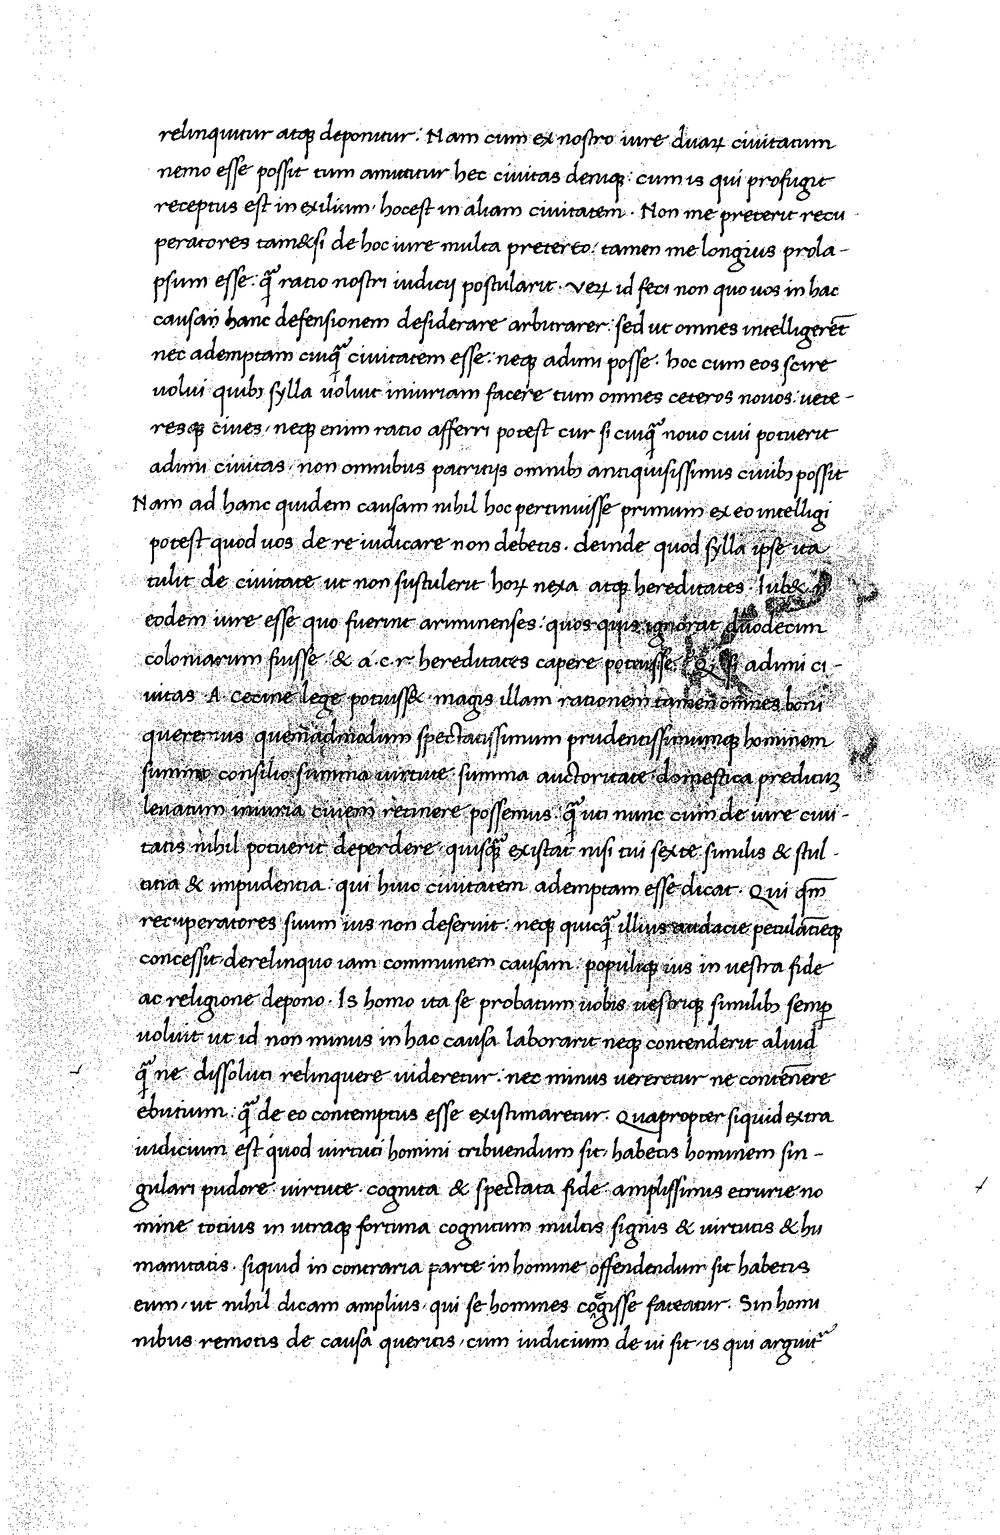 relinquitur atqꝫ deponitur. Nam cum ex nostro iure duaꝝ ciuitatum
nemo esse possit tum amittitur hec ciuitas deniqꝫ: cum is qui profugit
receptus est in exilium: hoc est in aliam ciuitatem. Non me preterit recu
peratores tam&si de hoc iure multa pretereo: tamen me longius prola-
psum esse: q̃ ratio nostri iudicij postularit. Veꝝ id feci non quo uos in hac
causam hanc defensionem desiderare arbitrarer: sed ut omnes intelligerẽt
nec ademptam cuiq̃ ciuitatem esse: neqꝫ adimi posse. hoc cum eos scire
uolui quibꝫ sylla uoluit iniuriam facere tum omnes ceteros nouos: uete-
resqꝫ ciues, neqꝫ enim ratio afferri potest cur si cuiq̃ nouo ciui potuerit
adimi ciuitas, non omnibus patritijs omnibꝫ antiquisissimis ciuibꝫ possit
Nam ad hanc quidem causam nihil hoc pertinuisse primum ex eo intelligi
potest quod uos de re iudicare non debetis. deinde quod sylla ipse ita
tulit de ciuitate ut non sustulerit hoꝝ nexa atqꝫ hereditates. Iub&
eodem iure esse quo fuerint ariminenses: quos quis ignorat duodecim
coloniarum fuisse & a. c. r hereditates capere potuisse. adimi ci-
uitas A. cecine lege potuiss& magis illam rationem tamen omnes boni
queremus quemadmodum spectatissimum prudentissimumqꝫ hominem
summo consilio summa uirtute summa auctoritate domestica preditũ
leuatum iniuria ciuem retinere possemus. q̃ uti nunc cum de iure ciui-
tatis nihil potuerit deperdere quisq̃ existat nisi tui sexte similis & stul-
titia & impudentia: qui huic ciuitatem ademptam esse dicat. Qui qm̃
recuperatores suum ius non deseruit: neqꝫ quicq̃ illius audacie petulãtieqꝫ
concessit derelinquo iam communem causam: populiqꝫ ius in uestra fide
ac religione depono. Is homo ita se probatum uobis uestriqꝫ similibꝫ semꝑ
uoluit ut id non minus in hac causa laborarit neqꝫ contenderit aliud
q̃ ne dissoluti relinquere uideretur: nec minus uereretur ne contẽnere
ebutium: q̃ de eo contemptus esse existimaretur. Quapropter siquid extra
iudicium est quod uirtuti homini tribuendum sit, habetis hominem sin-
gulari pudore uirtute cognita & spectata fide amplissimis etrurie no
mine totius in utraqꝫ fortuna cognitum multis signis & uirtutis & hu
manitatis. siquid in contraria parte in homine offendendum sit habetis
eum, ut nihil dicam amplius, qui se homines cogisse fateatur. Sin homi
nibus remotis de causa queritis, cum iudicium de ui sit, is qui arguit᷑